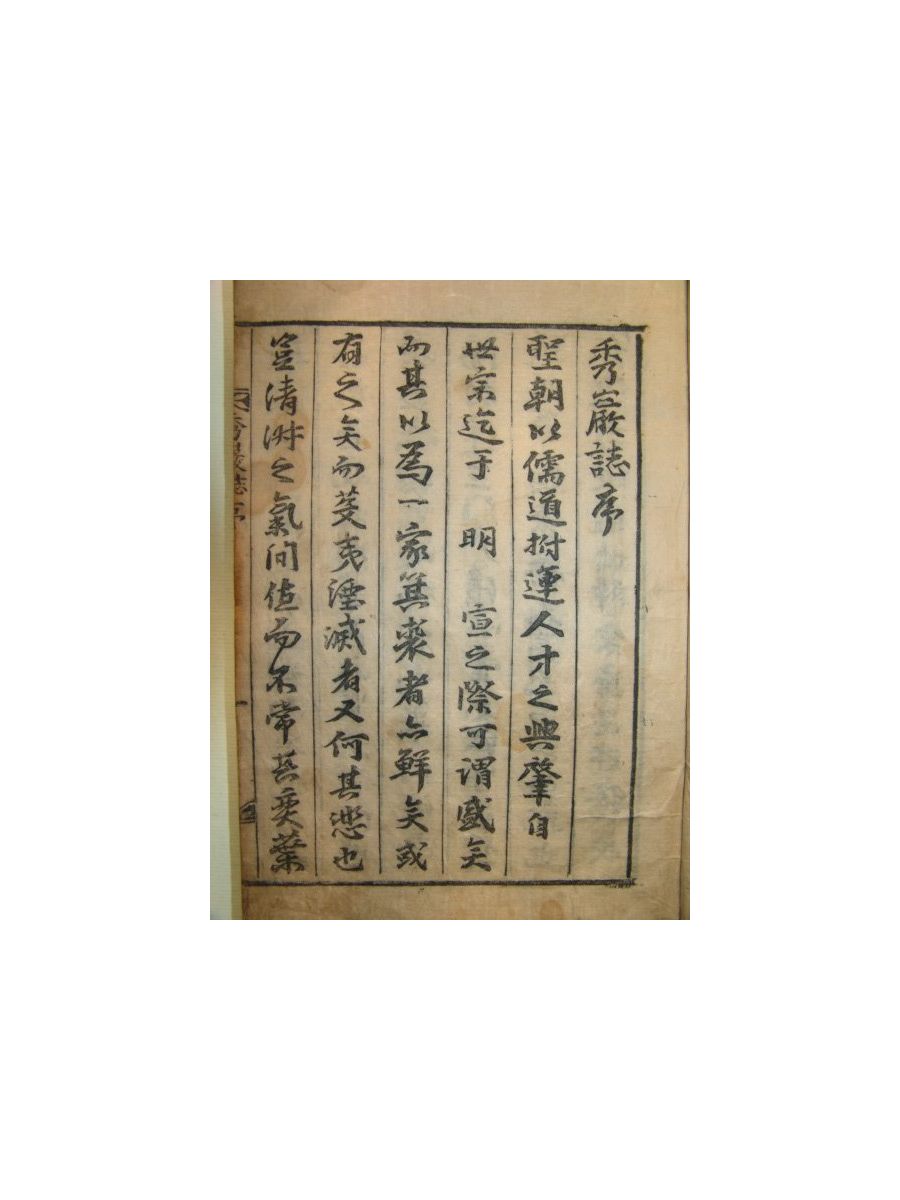 秀巖誌序
聖朝以儒道拊運人才之興肇自
世宗迄于 明 宣之際可謂盛矣
而其以爲一家箕裘者亦鮮矣或
有之矣而芟夷湮滅者又何其悲也
豈清淑之氣间值而不常甚奕葉